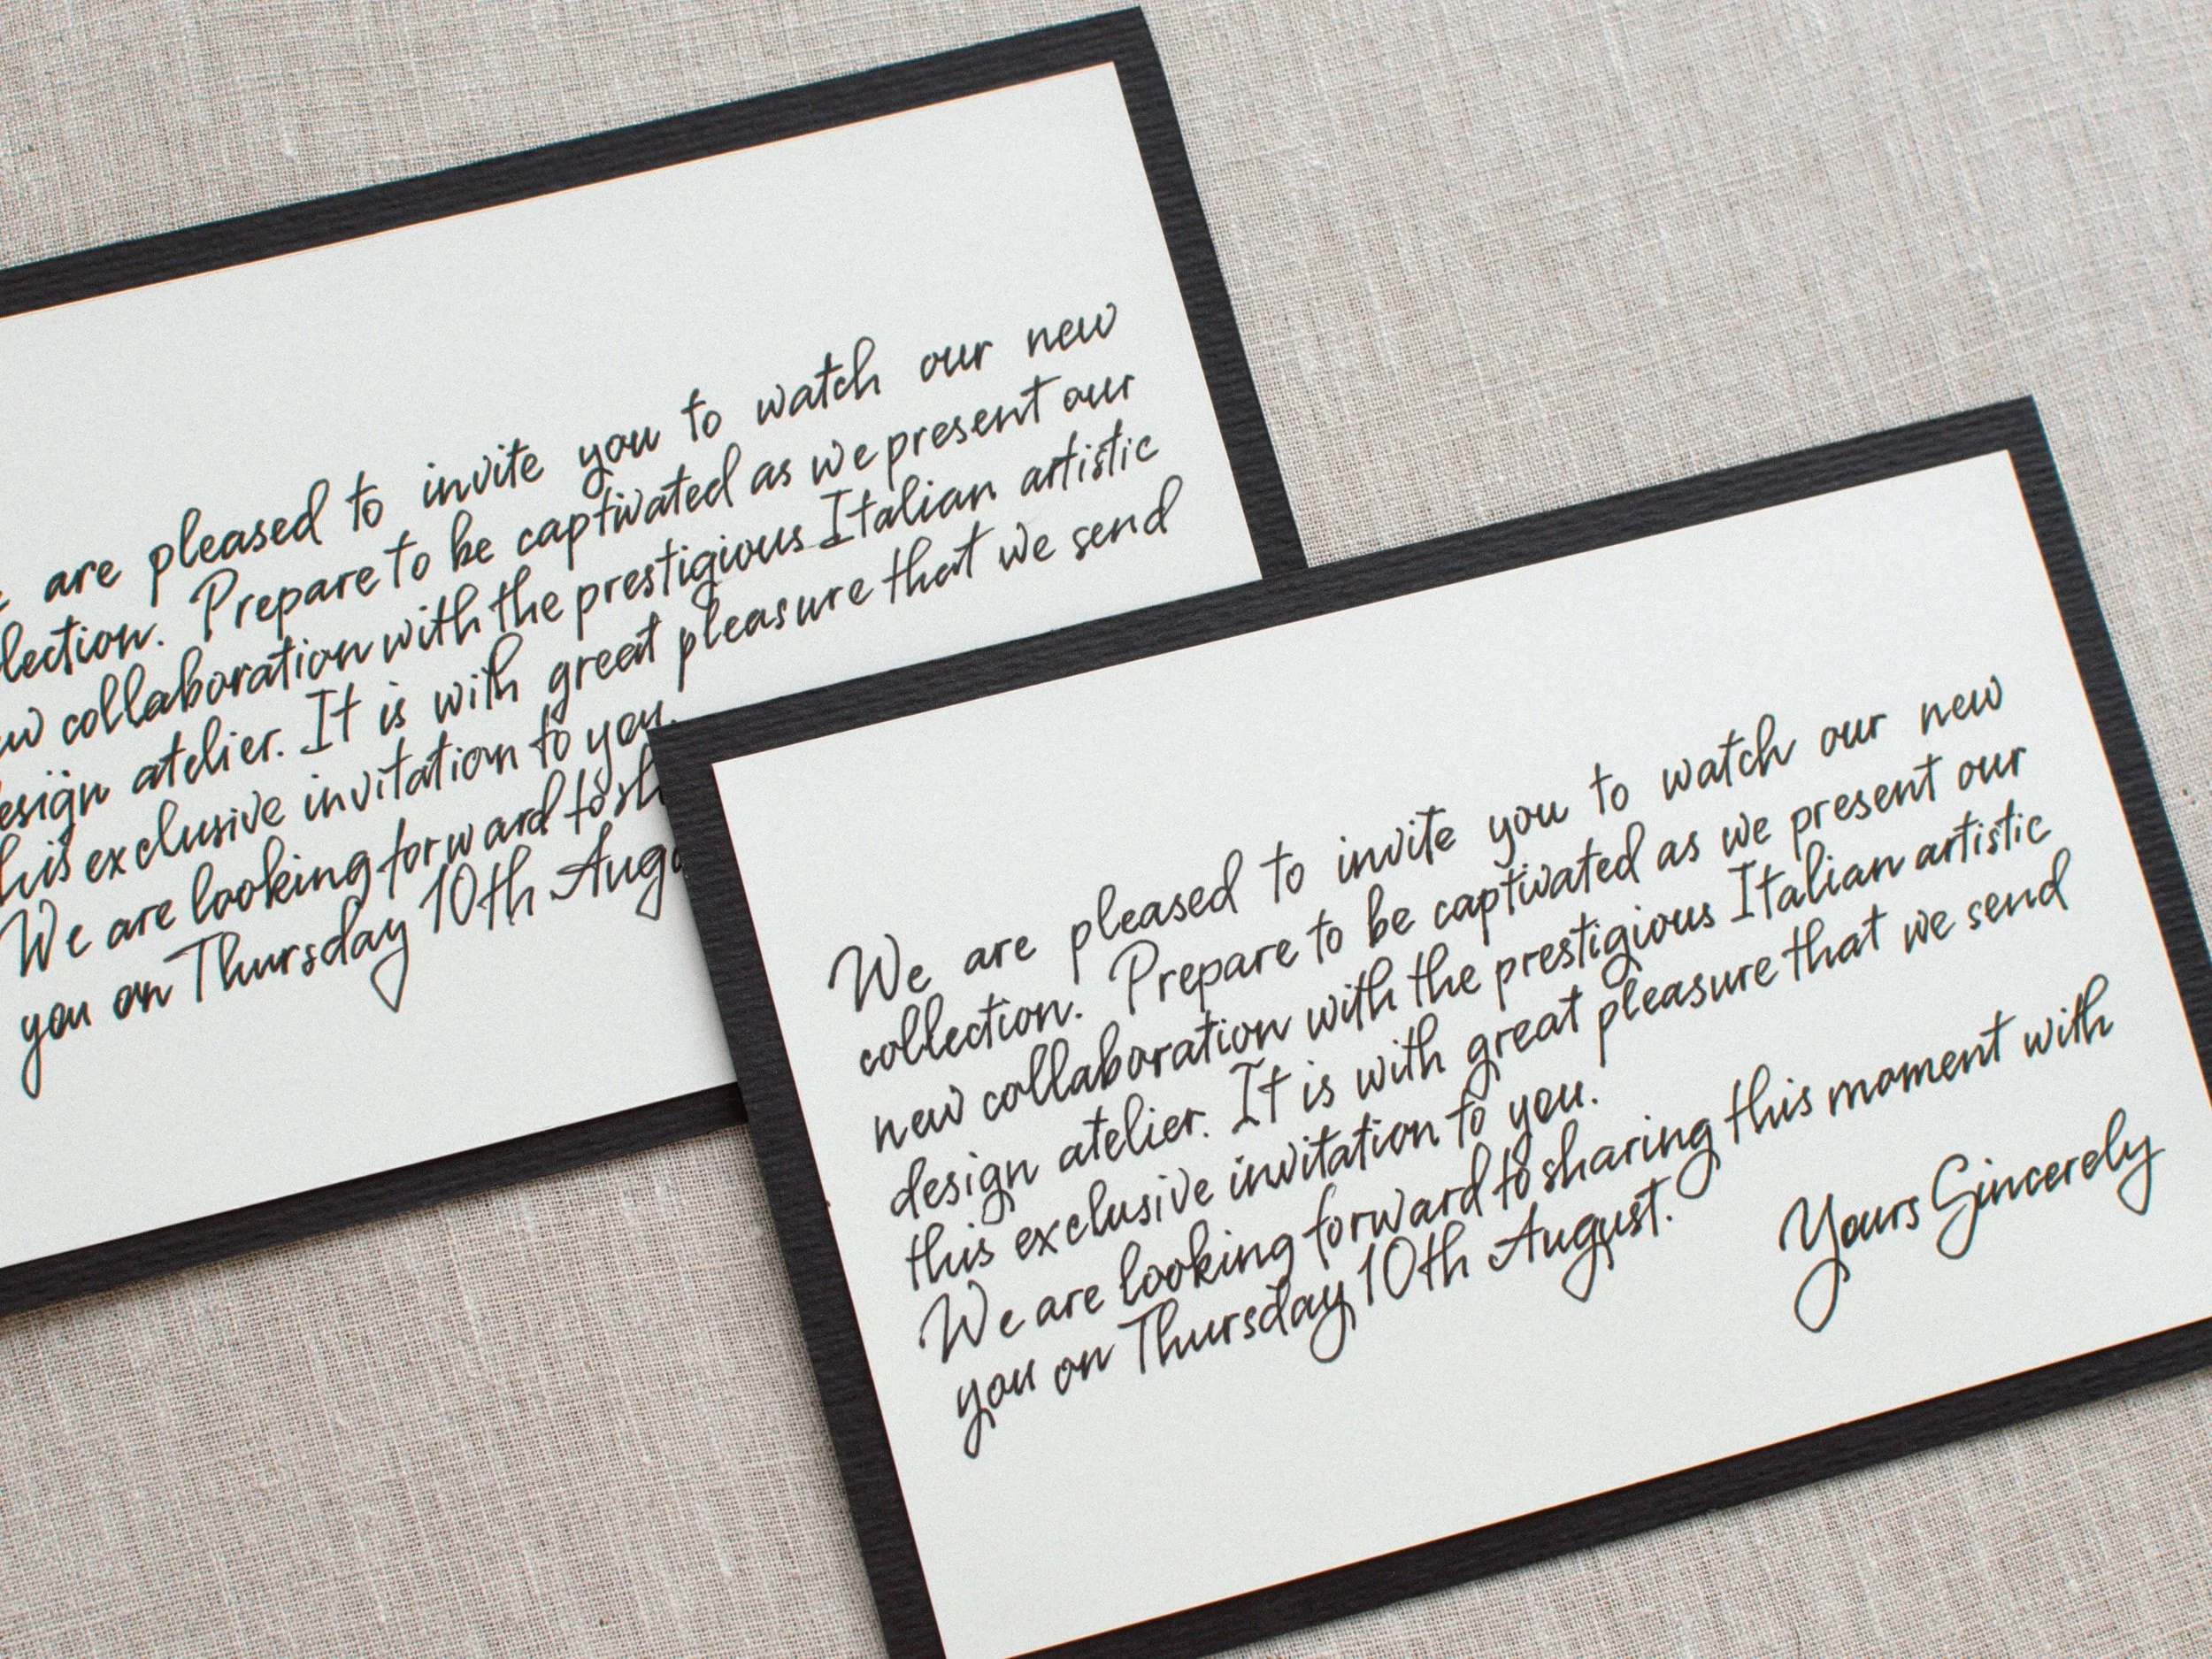 are pleased to invite you to watch our new
lection. Prepare to be captivated as we present our
collaboration with the prestigious Italian artistic
esign atelier. It is with great pleasure that we send
his exclusive invitation to you.
We are looking forward to sh
you on Thursday 10th Augu
We are pleased to invite you to watch our new
collection. Prepare to be captivated as we present our
new collaboration with the prestigious Italian artistic
design atelier. It is with great pleasure that we send
this exclusive invitation to you.
We are looking forward to sharing this moment with
you on Thursday 10th August.
Yours Sincerely